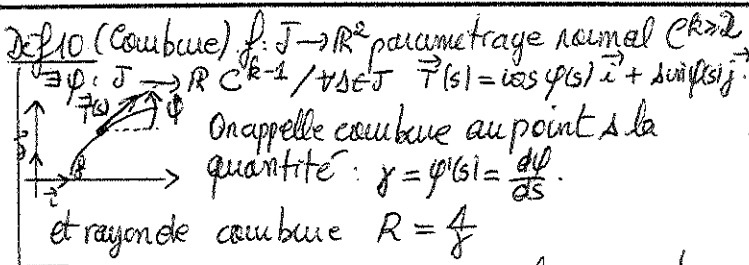 Def 10 (Courbure) f: J→ℝ² paramétrage normal C^{k≥2}
∃φ: J → ℝ C^{k-1} / ∀s∈J T⃗(s) = cos φ(s) i⃗ + sin φ(s) j⃗.
T⃗(s) φ
On appelle courbure au point s la
j⃗ quantité : γ = φ'(s) = dφ/ds.
i⃗
et rayon de courbure R = 1/γ